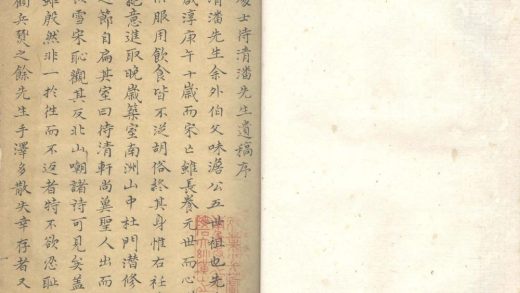 士待清潘先生遺稿序
清潘先生余外伯父味澹公五世祖也先
咸淳庚午十歲而宋亡雖長養元世而心
服用飲食皆不從胡俗終其身惟右衽
絶意進取晚歲築室南洲山中杜門潛修
之節自扁其室曰待清軒尚冀聖人出而
雪宋恥觀其反北山嘲諸詩可見矣蓋
雖然非一於徃而不返者特不欲忍恥
兵燹之餘先生手澤多散失幸存者又